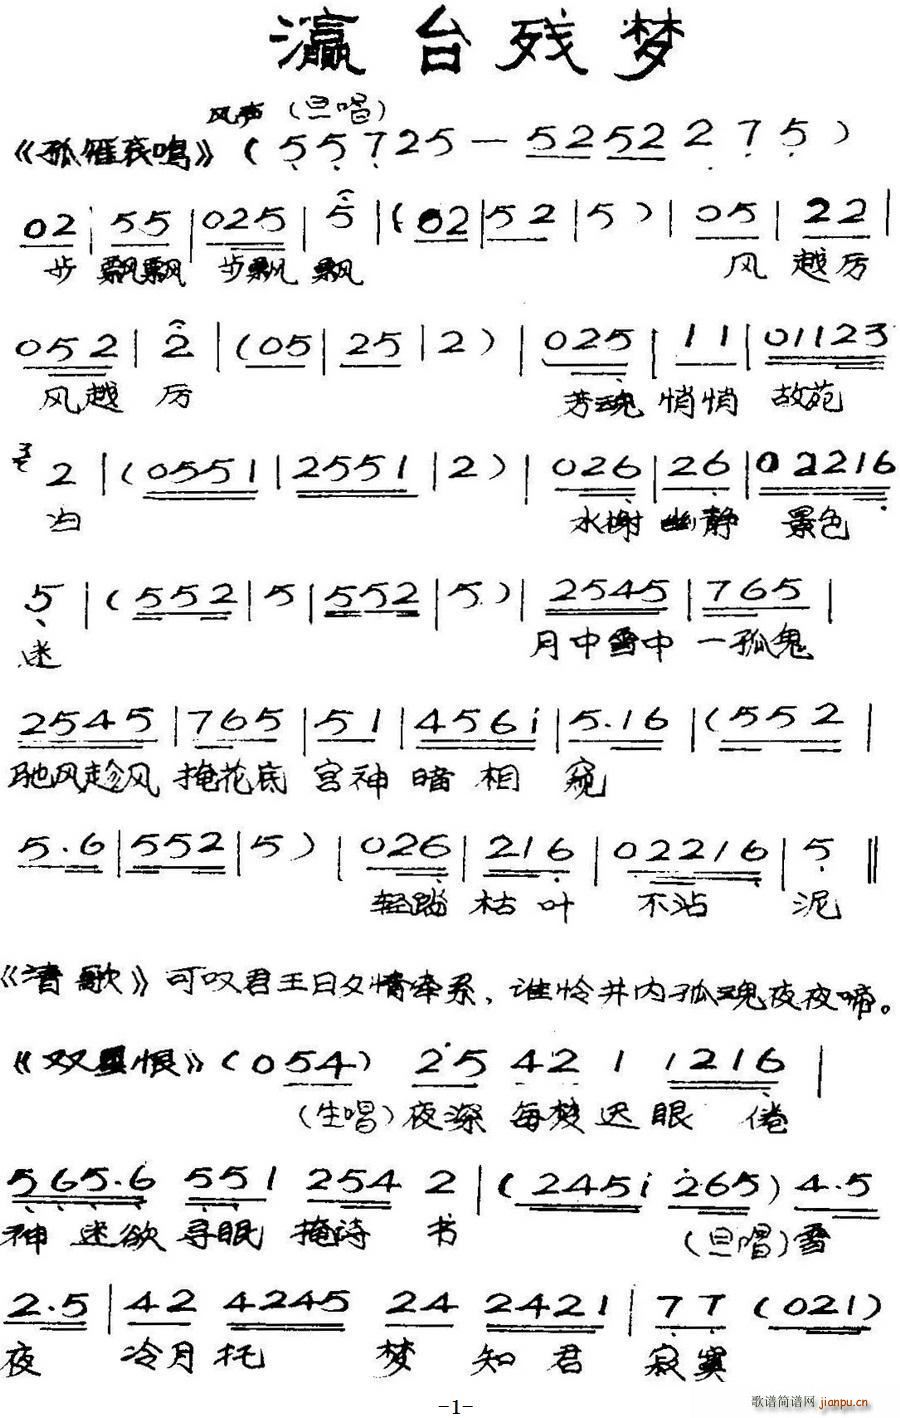 瀛台残梦
风声 (旦唱)
《孤雁哀鸣》( 5 5 7 2 5 — 5 2 5 2 2 7 5 )
02 | 55 | 025 | 5 | ( 02 | 52 | 5 ) | 05 | 22 |
步 飘飘 步飘 飘 风 越厉
052 | 2 | ( 05 | 25 | 2 ) | 025 | 11 | 01123
风越 厉 芳魂 悄悄 故苑
2 | ( 0551 | 2551 | 2 ) | 026 | 26 | 02216
归 水榭 幽静 景色
5 | ( 552 | 5 | 552 | 5 ) | 2545 | 765 |
迷 月中雪中 一孤鬼
2545 | 765 | 51 | 456i | 5.16 | ( 552 |
驰风趁风 掩花底 宫神 暗 相 窥
5.6 | 552 | 5 ) | 026 | 216 | 02216 | 5 ‖
轻踏 枯 叶 不沾 泥
《清歌》可叹君王日夕情牵系，谁怜井内孤魂夜夜啼。
《双星恨》( 054 ) 25 42 1 1216 |
(生唱) 夜深 每梦 迟 眼 倦
565.6 551 254 2 | ( 245i 265 ) 4.5
神 迷欲 寻眠 掩诗 书 (旦唱) 雪
2.5 | 42 4245 24 2421 | 77 ( 021 )
夜 冷月 托 梦 知 君 寂寞
-1-
歌谱简谱网 jianpu.cn